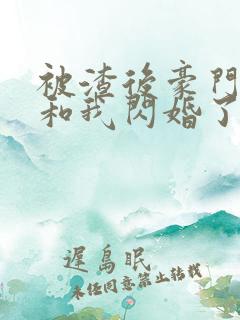 被渣後豪門
和我閃婚了
遲島眠
未经同意禁止转载